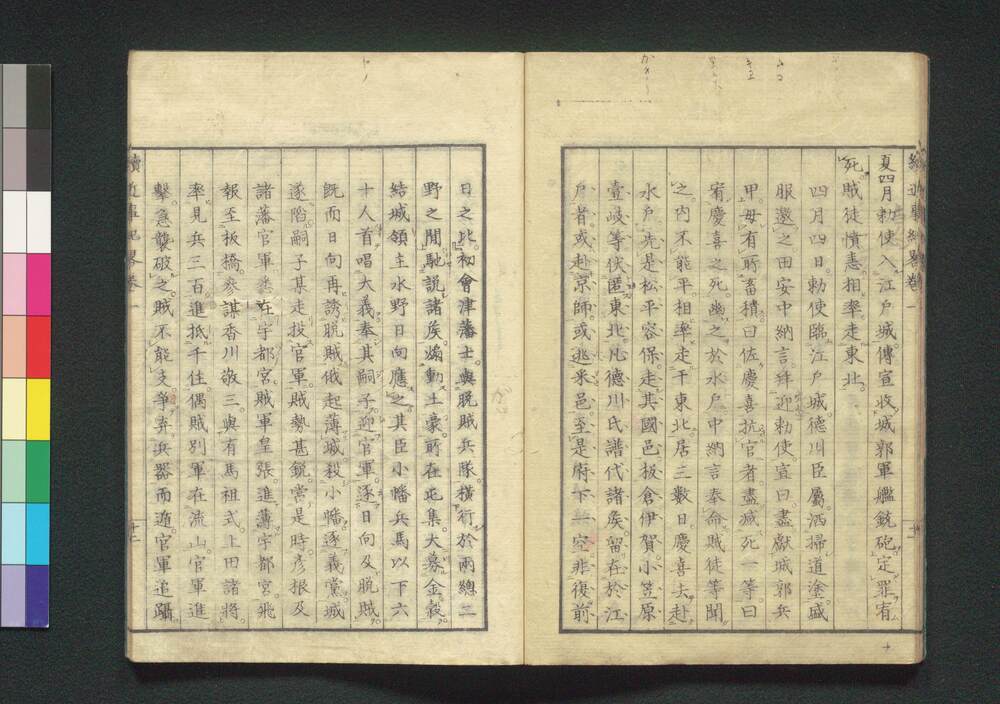 夏四月勅使入江戸城傳宣收城郭軍艦銃砲定罪宥
死賊徒憤恚相率走東北
四月四日勅使臨江戸城德川臣屬洒掃道塗盛
服邀之田安中納言拜迎勅使宣曰盡獻城郭兵
甲毋有所畜積曰佐慶喜抗官者盡減死一等曰
宥慶喜之死幽之於水戸中納言奉命賊徒等聞
之内不能平相率走于東北居三數日慶喜去赴
水戸先是松平容保走其國邑板倉伊賀小笠原
壹岐等伏匿東北凡德川氏譜代諸侯留在於江
戸者或赴京師或逃釆邑至是府下一空非復前
日之比初會津藩士與脱賊兵隊橫行於兩總二
野之間馳説諸侯煽動土豪所在屯集大募金穀
結城領主水野日向應之其臣小幡兵馬以下六
十人首唱大義奉其嗣子迎官軍逐日向及脱賊
既而日向再誘脱賊俄起薄城殺小幡逐義黨城
遂陷嗣子某走投官軍賊勢甚鋭當是時彥根及
諸藩官軍在宇都宮賊軍皇張進薄宇都宮飛
報至板橋參謀香川敬三與有馬祖式上田諸將
率見兵三百進抵千住偶賊別軍在流山官軍進
擊急襲破之賊不能支爭弃兵器而遁官軍追躡
續近
卷一
十